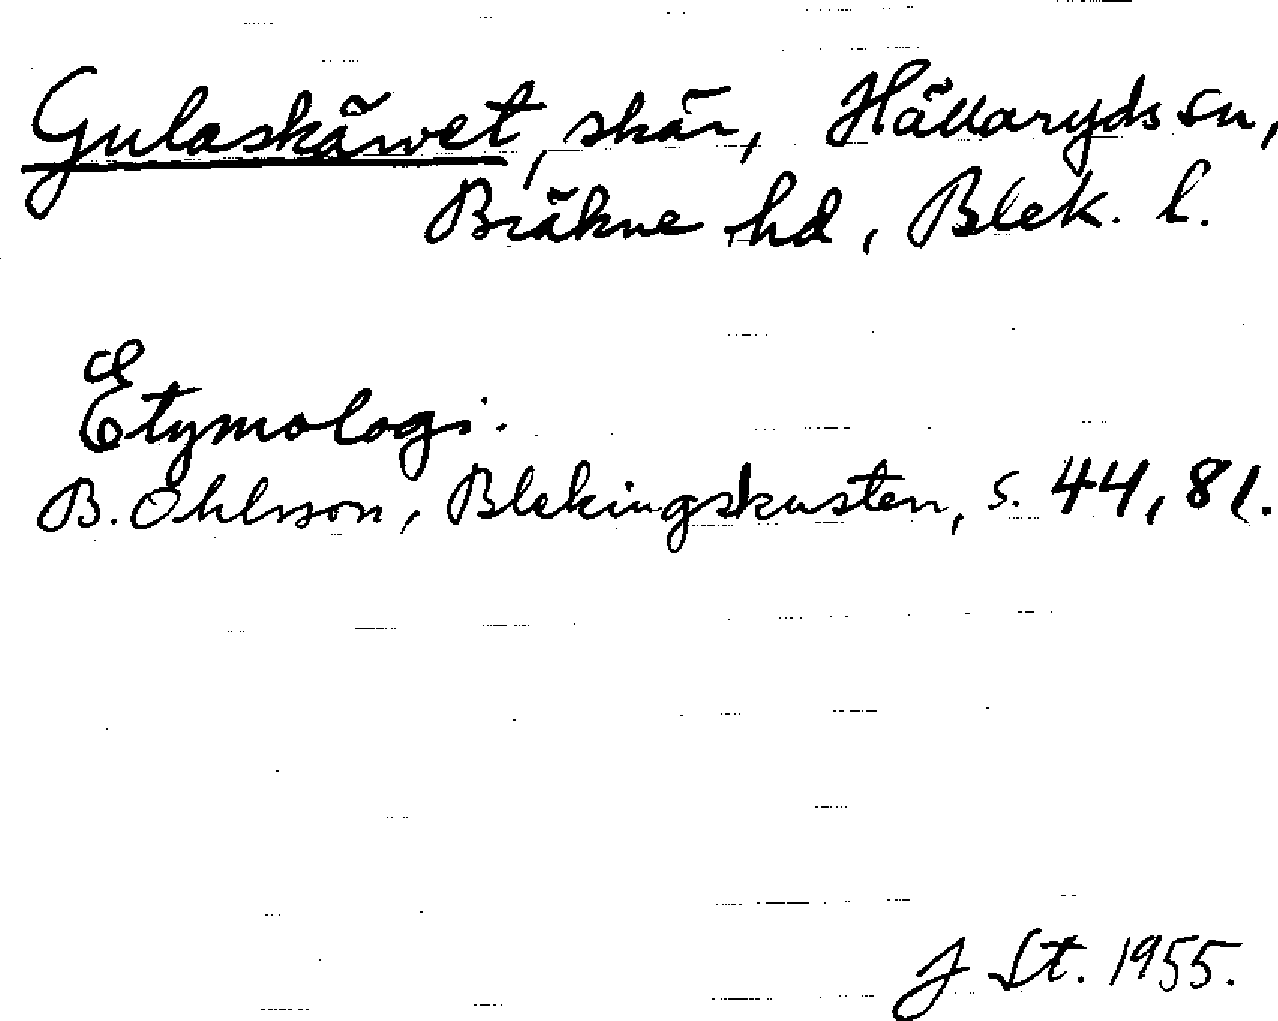 Gulaskärvet, skär, Hällaryds sn,
Bräkne hd, Blek. l.
Etymologi.
B. Ohlsson, Blekingskusten, s. 44, 81.
J St. 1955.